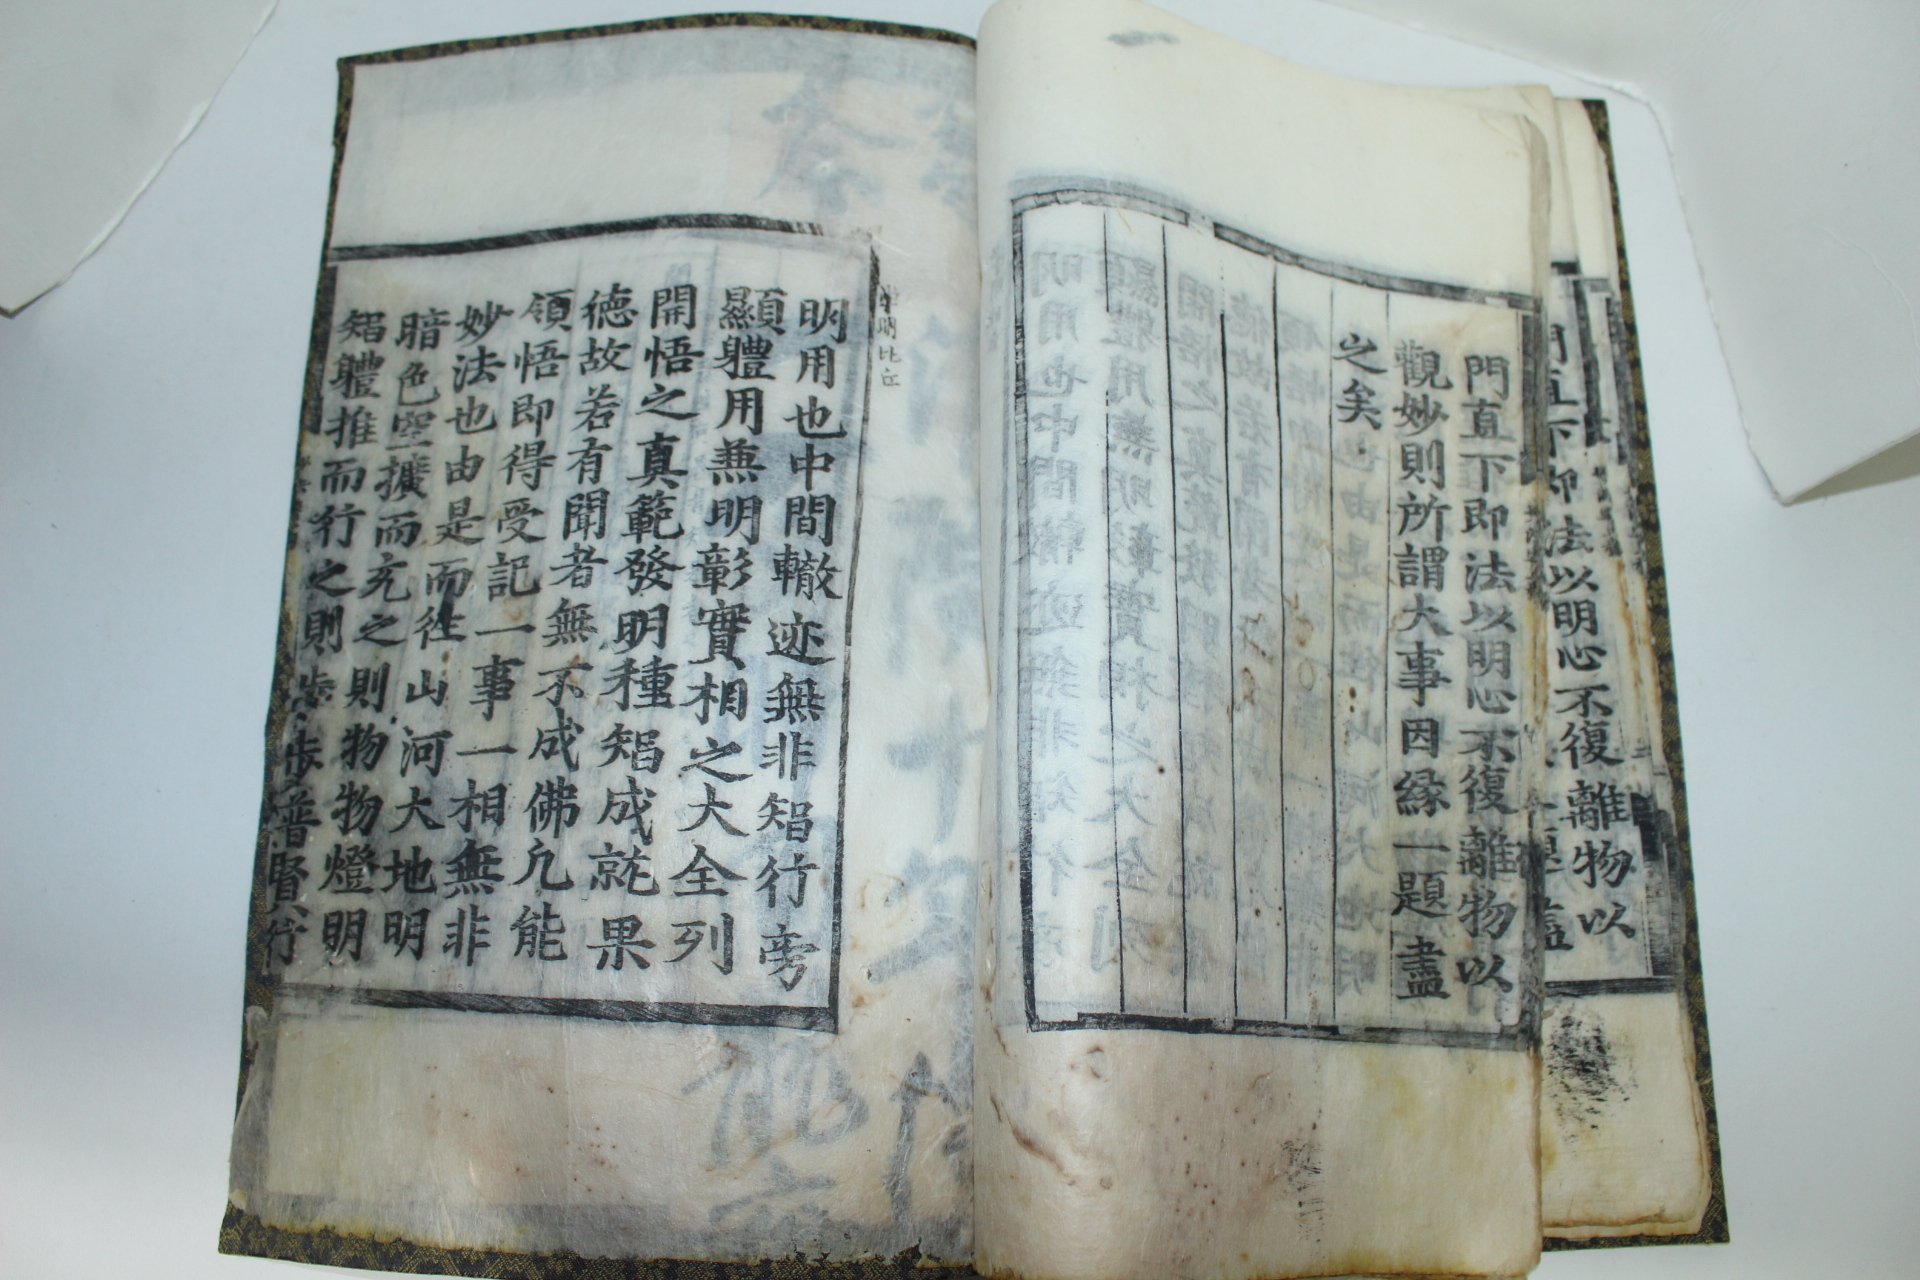 門直下即法以明心不復離物以
觀妙則所謂大事因緣一題盡
之矣
明用也中間轍迹無非智行旁
顯體用兼明彰實相之大全列
開悟之真範發明種智成就果
德故若有聞者無不成佛凢能
領悟即得受記一事一相無非
妙法也由是而徃山河大地明
暗色空擴而充之則物物燈明
智體推而行之則步步普賢行
門直下即法以明心不復離物以